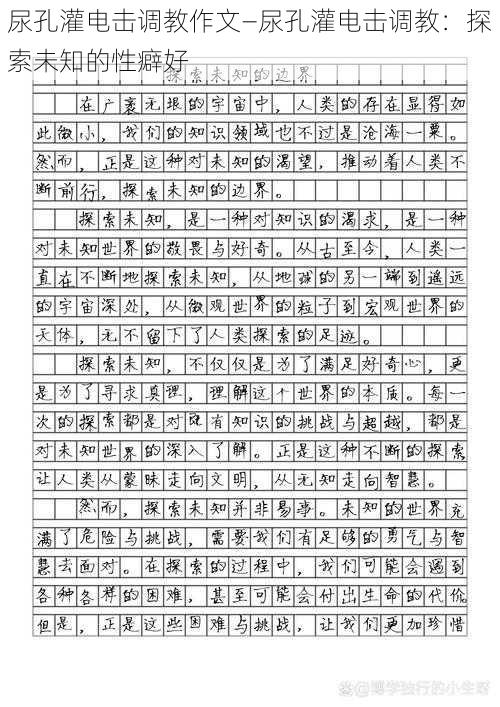 尿孔灌电击调教作文—尿孔灌电击调教：探
索未知的性癖好
探索未知的边界
在广袤无垠的宇宙中，人类的存在显得如
此微小，我们的知识领域也不过是沧海一粟。
然而，正是这种对未知的渴望，推动着人类不
断前行，探索未知的边界。
探索未知，是一种对知识的渴求，是一种
对未知世界的敬畏与好奇。从古至今，人类一
直在不断地探索未知，从地球的另一端到遥远
的宇宙深处，从微观世界的粒子到宏观世界的
天体，无不留下了人类探索的足迹。
探索未知，不仅仅是为了满足好奇心，更
是为了寻求真理，理解这个世界的本质。每一
次的探索都是对既有知识的挑战与超越，都是
对未知世界的深入了解。正是这种不断的探索
让人类从蒙昧走向文明，从无知走向智慧。
然而，探索未知并非易事。未知的世界充
满了危险与挑战，需要我们有足够的勇气与智
慧去面对。在探索的过程中，我们可能会遇到
各种各样的困难，甚至可能会付出生命的代价。
但是，正是这些困难与挑战，让我们更加珍惜
@博学独行的小生呀